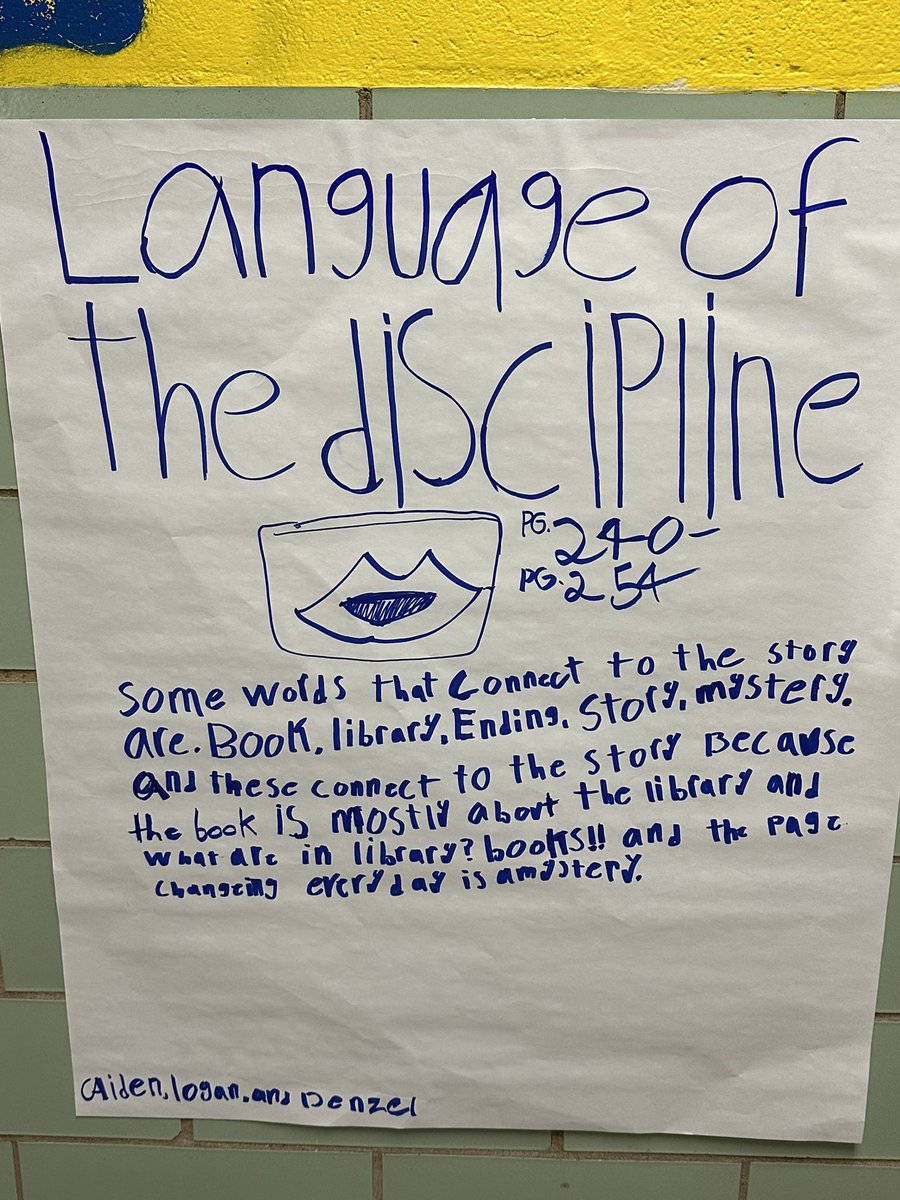 Language of
the discipline
PG. 240-
PG. 254
Some words that Connect to the story
are. Book, library, Ending, Story, mystery.
and these connect to the story Because
the book is mostly about the library and
what are in library? books!! and the page
changeing everyday is a mystery.
Aiden, logan, and Denzel